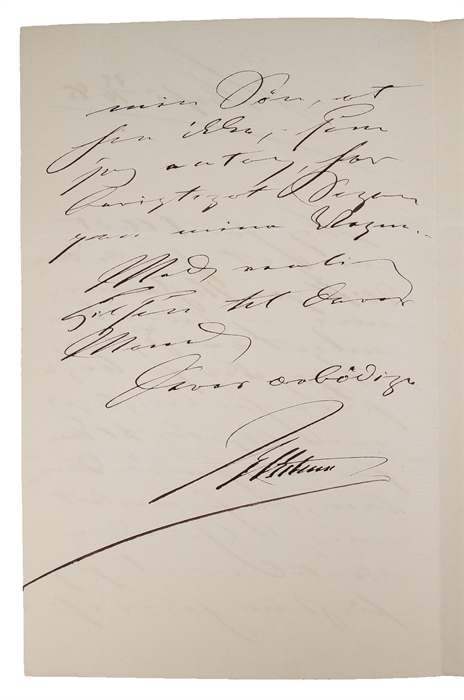 min Søn, at
han ikke, som
jeg antog, har
berigtiget Sagen
paa mine Vegne.
Med venlig
Hilsen til Deres
Mand
Deres ærbødige